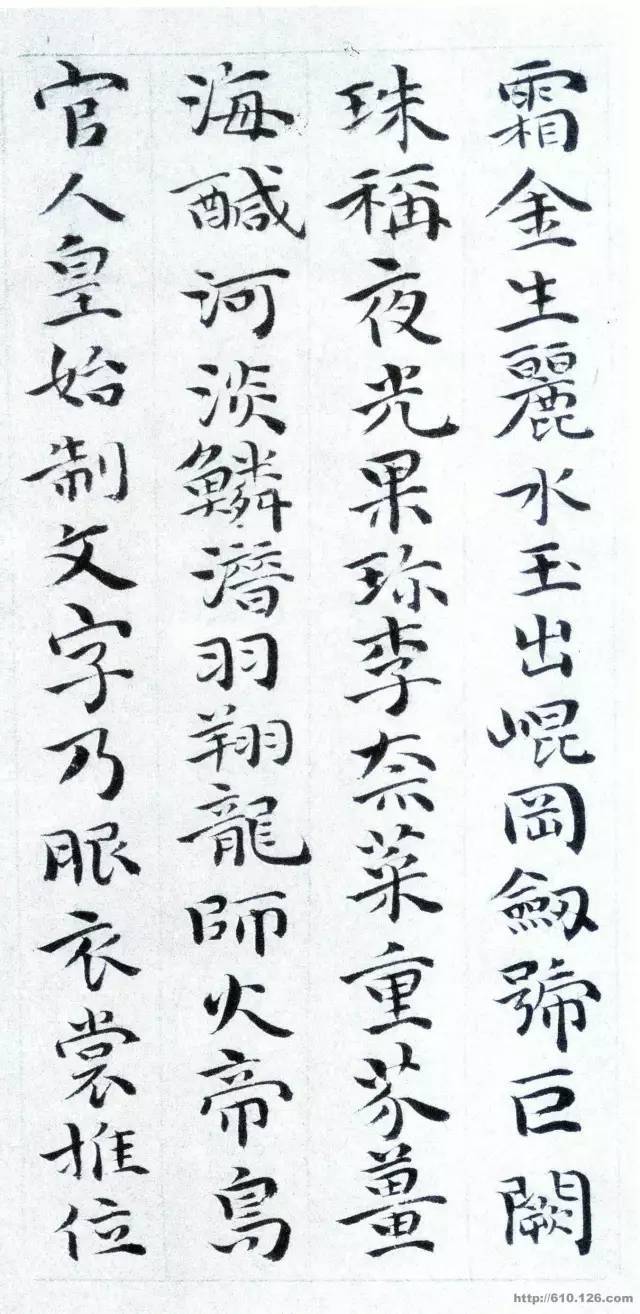 霜金生麗水玉出崐岡劔號巨闕
珠稱夜光果珎李柰菜重芥薑
海醎河淡鱗潛羽翔龍師火帝鳥
官人皇始制文字乃服衣裳推位
http://610.126.com